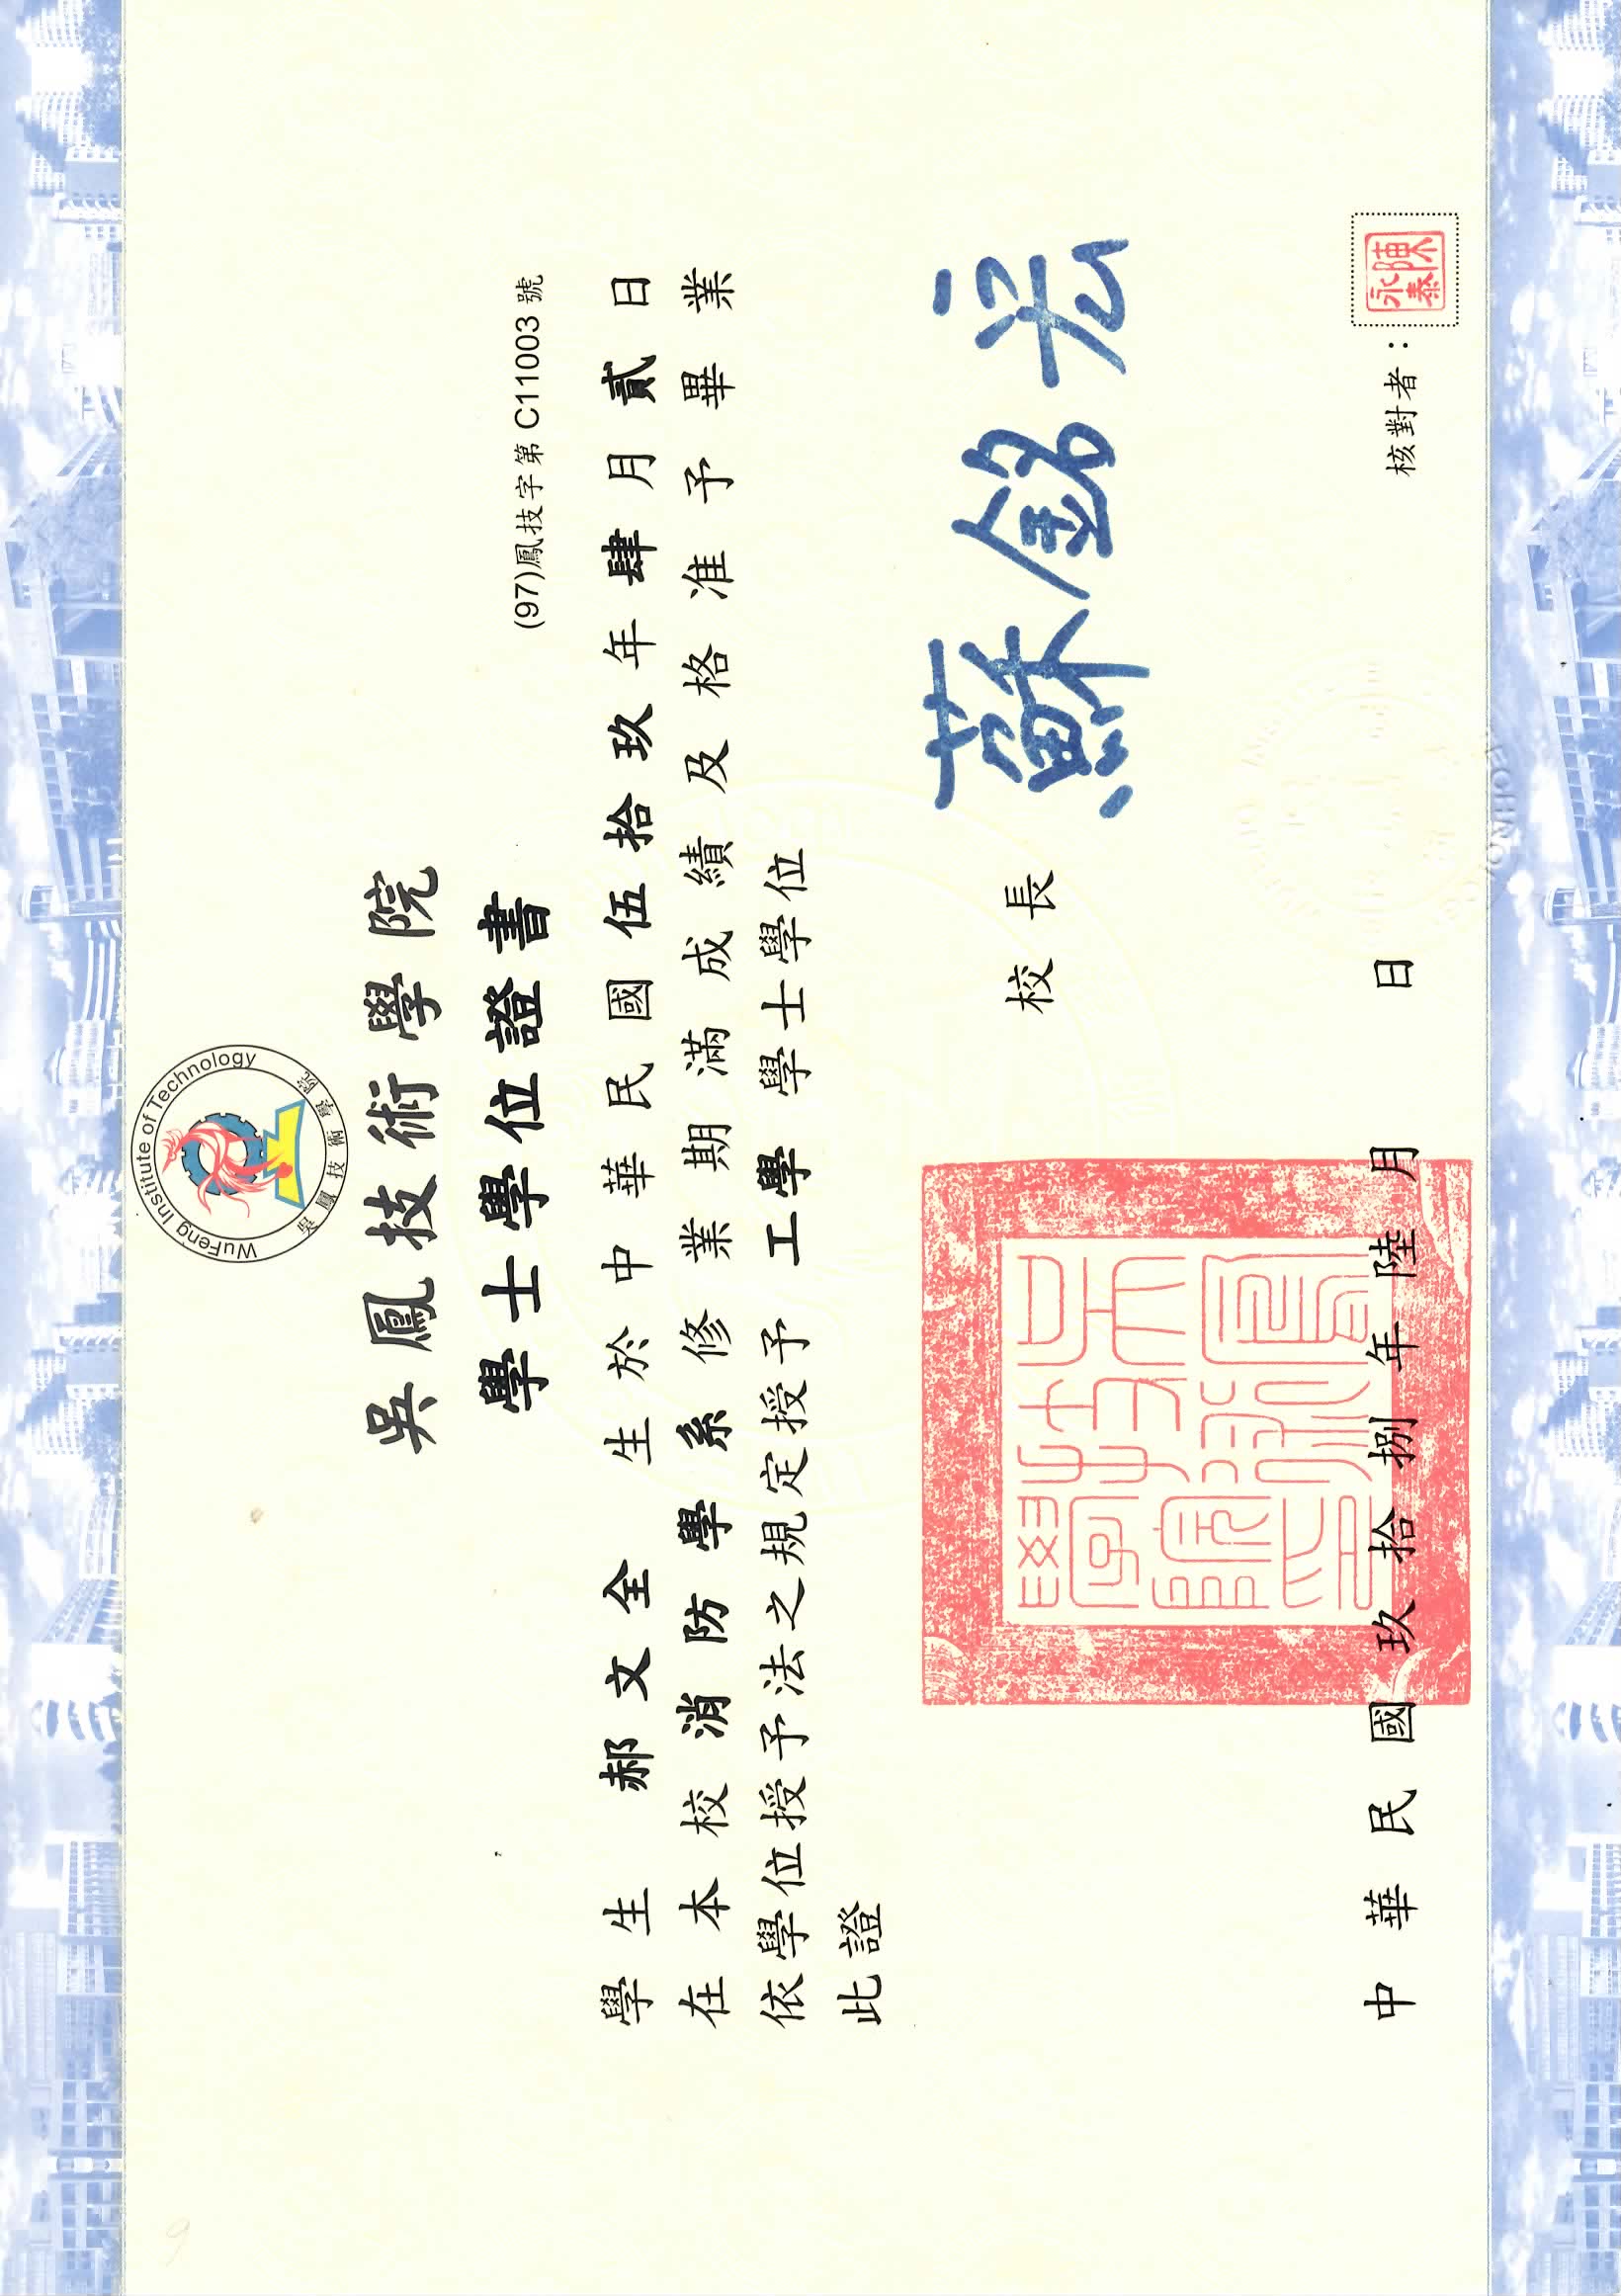 WuFeng Institute of Technology
吳鳳技術學院
吳鳳技術學院
學士學位證書
(97)鳳技字第C11003號
學生 郝文全 生於中華民國伍拾玖年肆月貳日
在本校消防學系修業期滿成績及格准予畢業
依學位授予法之規定授予 工學 學士學位
此證
校長 蘇銘宏
中華民國玖拾捌年陸月 日
核對者：
陳永泰